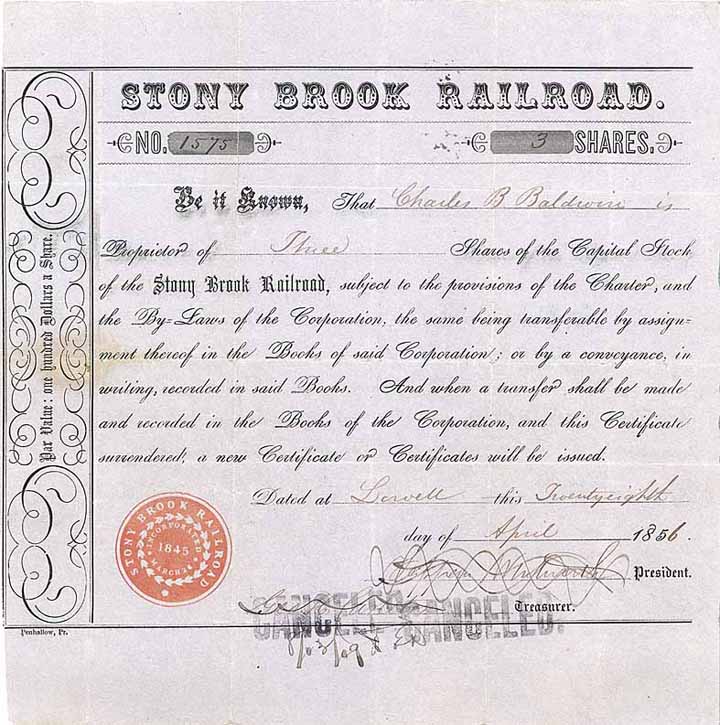 STONY BROOK RAILROAD.
NO. 1575 3 SHARES.
Be it Known, That Charles B Baldwin is
Proprietor of Three Shares of the Capital Stock
of the Stony Brook Railroad, subject to the provisions of the Charter, and
the By-Laws of the Corporation, the same being transferable by assign-
ment thereof in the Books of said Corporation; or by a conveyance, in
writing, recorded in said Books. And when a transfer shall be made
and recorded in the Books of the Corporation, and this Certificate
surrendered, a new Certificate or Certificates will be issued.
Dated at Lowell this Twentyeighth
day of April 1856.
President.
Treasurer.
CANCELED. CANCELED.
Par Value, one hundred Dollars a Share.
STONY BROOK RAILROAD
INCORPORATED
1845
MARCH
Penhallow, Pr.